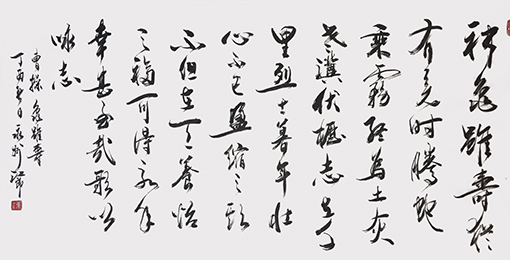 神龜雖壽猶
有竟时騰蛇
乘霧終為土灰
老驥伏櫪志在千
里烈士暮年壮
心不已盈缩之期
不但在天養怡
之福可得永年
幸甚至哉歌以
咏志
曹操龜雖壽
丁酉日永州